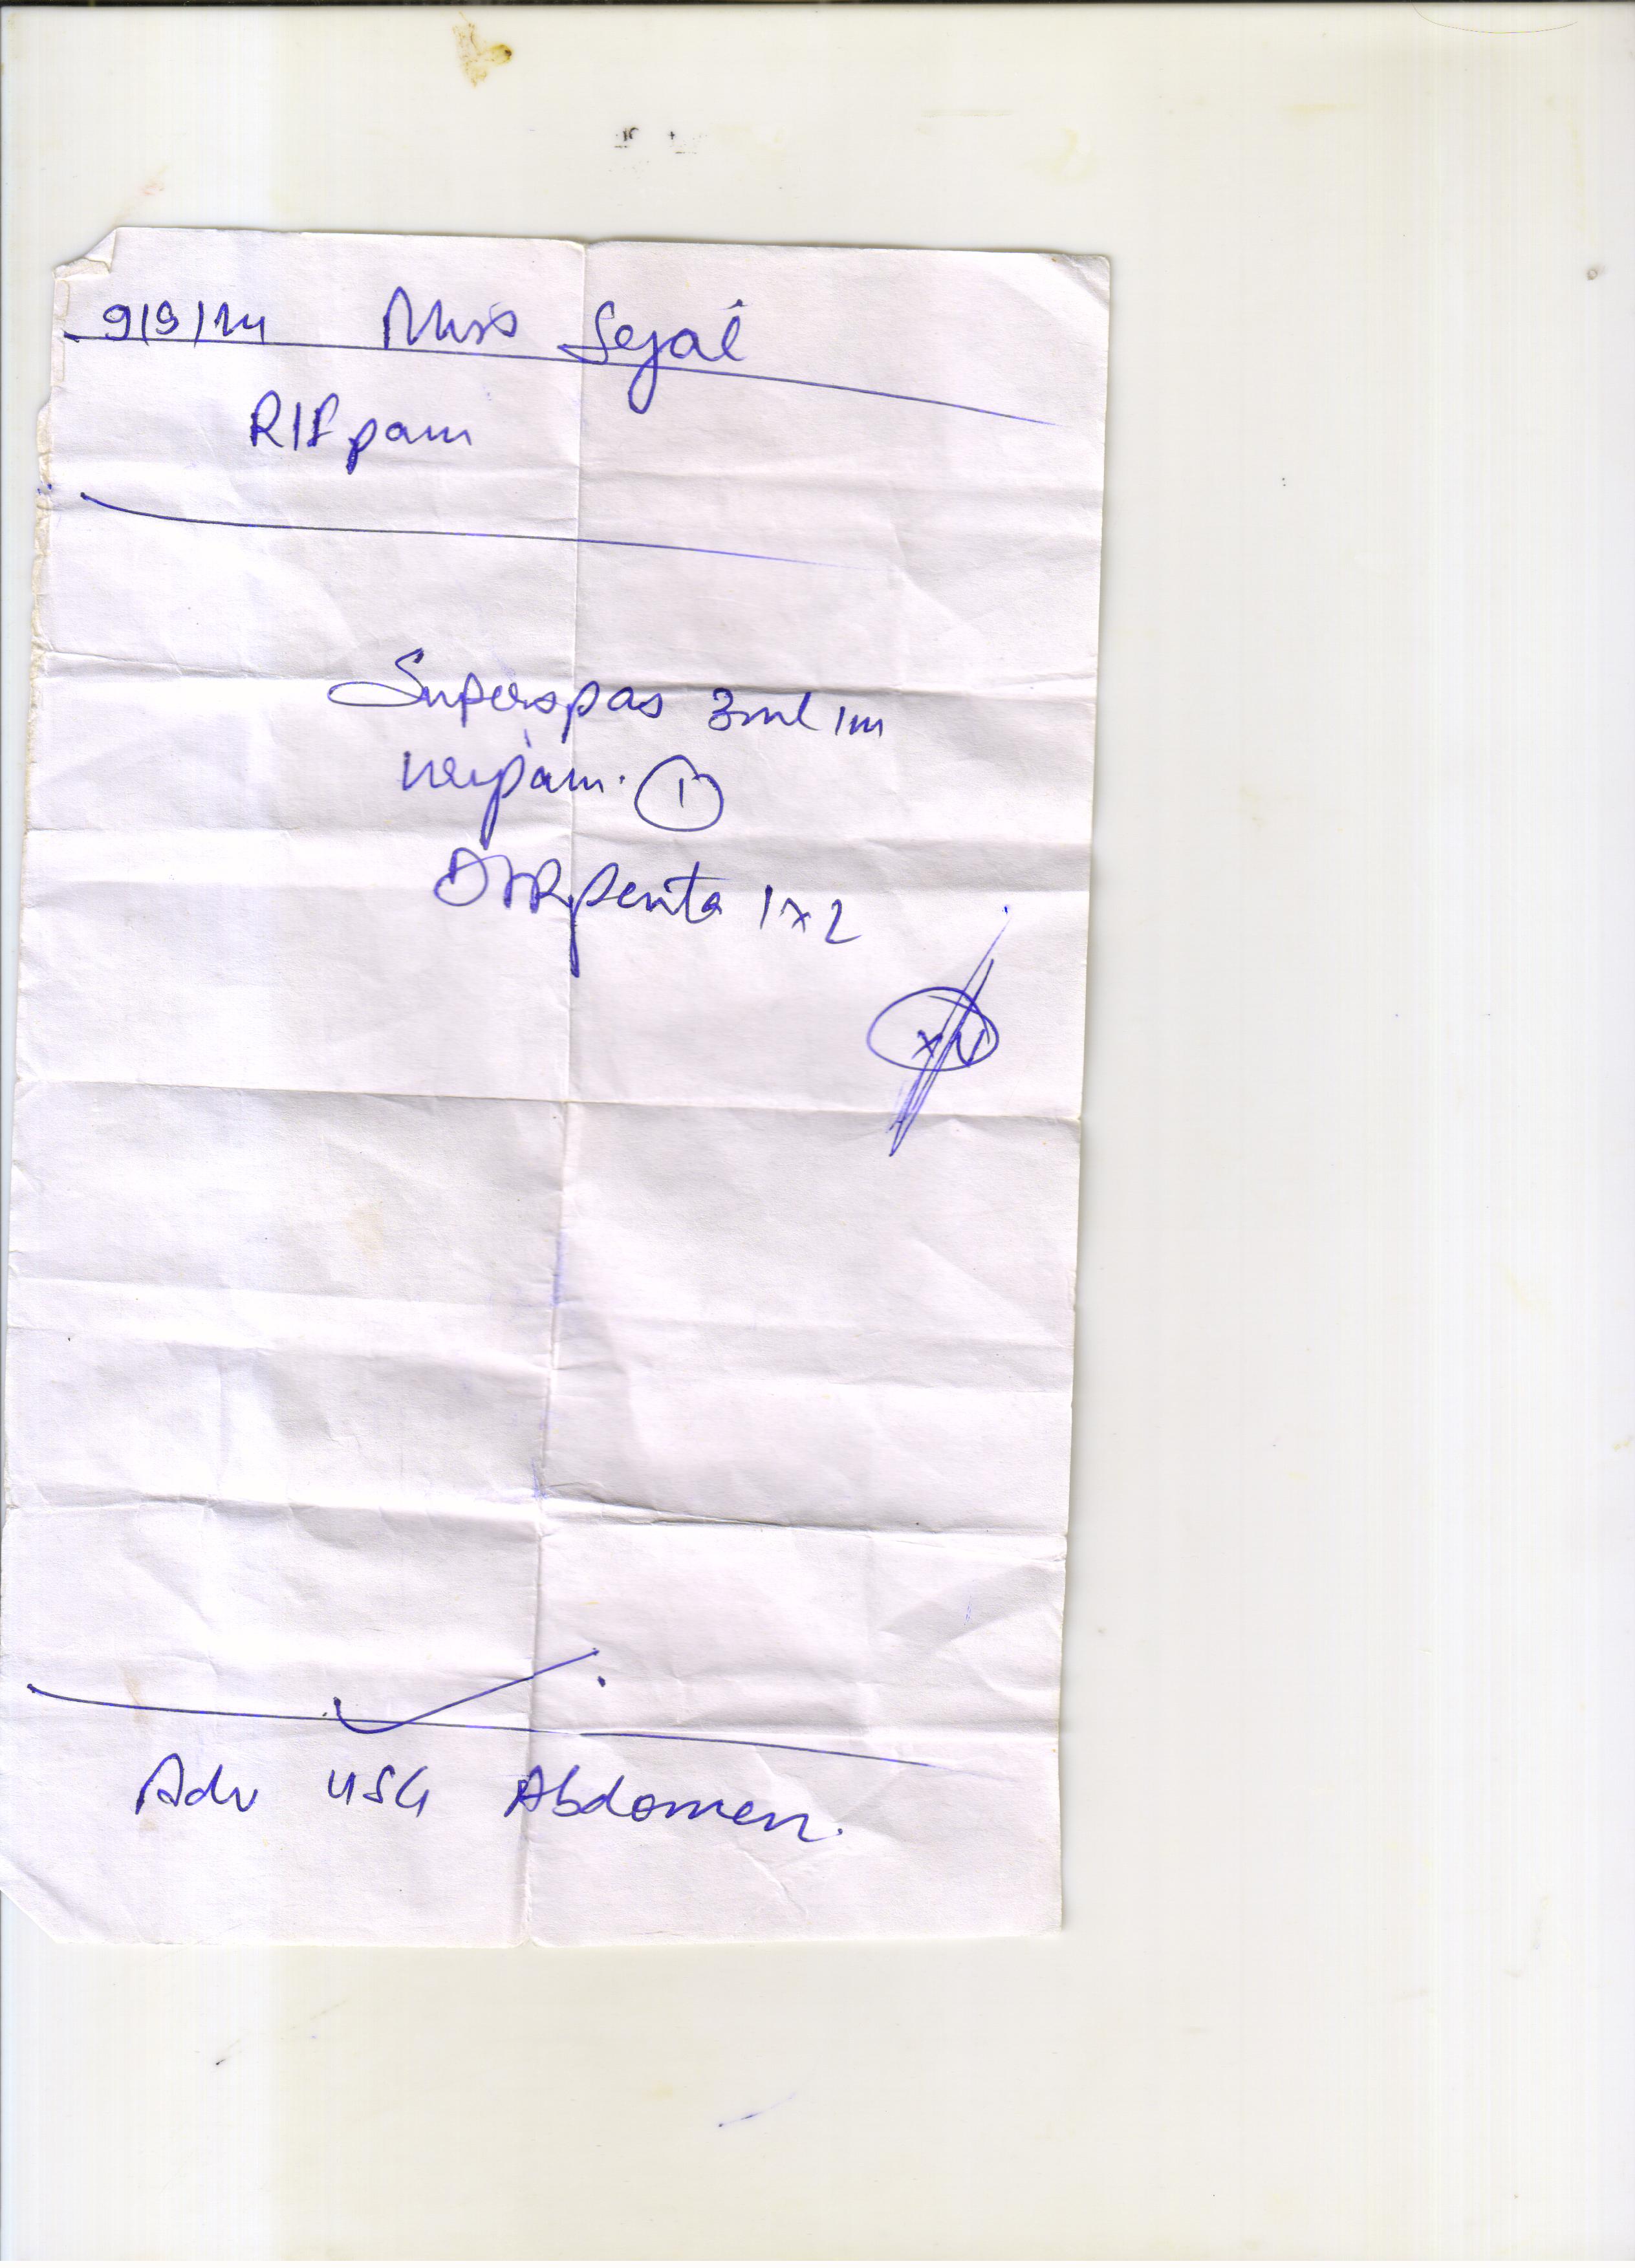 9/9/14 Miss Sejal
RIF pain
Superspas 3ml im
①
penta 1x2
Adv USG Abdomen.